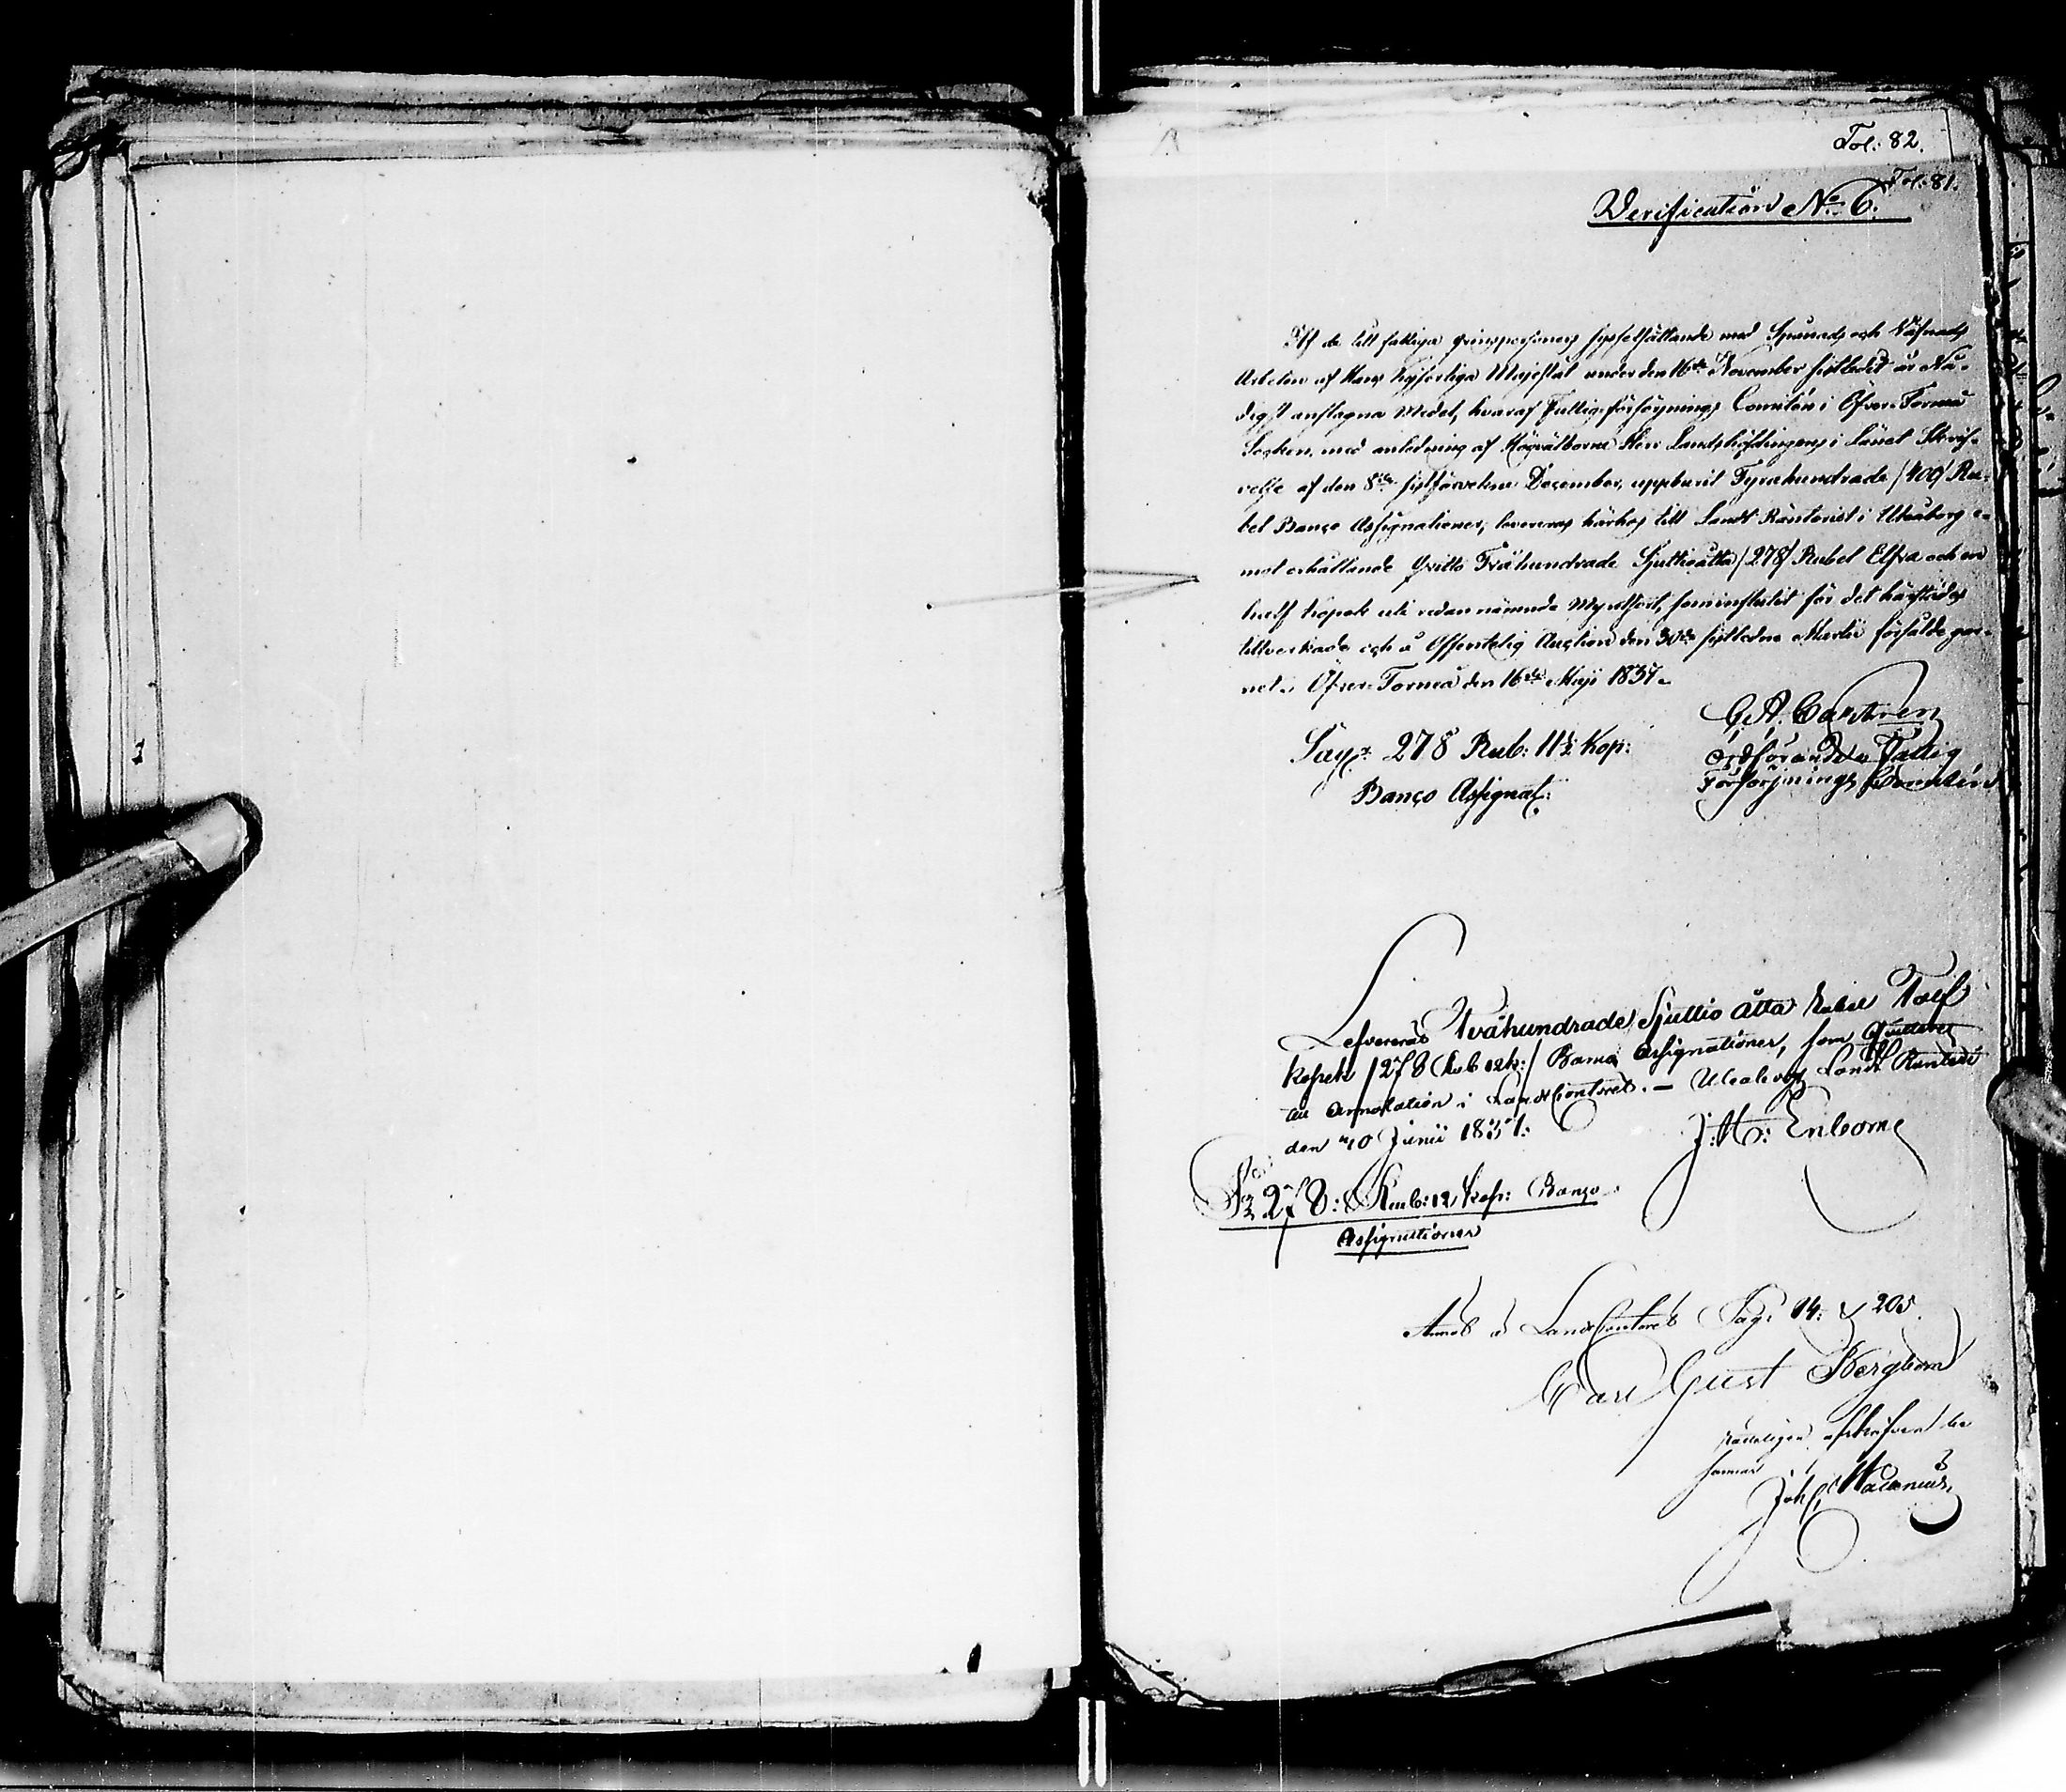 Fol: 82.
Fol: 81.
Verification No 6.
Af de till fattiga qvinspersoners sysselsättande med Spånads och Väfnads
Arbeten af Hans Kejserliga Majestät under den 16de November sistledit år Nå-
digst anslagne Medel, hvaraf Fattigförsörjnings Comitén i Öfver-Torneå
Socken, med anledning af Högvälborne Herr Landshöfdingens i länet Skrif-
velse af den 8de sistförvekne December, uppburit Fyrahundrade /400/ Ru-
bel Banco Assignationer, levereras härhos till Landt Ränteriet i Uleåborg e-
mot erhållande qvitto Tvåhundrade Sjuttioåtta /278/ Rubel Elfva och en
half kopek uti redan nämnde Myntsort, som influtit för det härstädes
tillverkade och å Offentelig Auction den 30de sistledne Martii försålde gar-
net. Öfver-Torneå den 16de Maji 1837.
Säg: 278 Rub: 11½ Kop:
Banco Assignat:
G. A. Castrén
Ordförande i Fattig
Försörjnings Comitén
Lefvereras Tvåhundrade Sjuttio åtta Rubel Tolf
Kopek /278 Rub 12 k:/ Banco Assignationer, som Quitteras
till Annotation i LandsContoret. — Uleaborg Landt Ränteri
den 10 Junii 1837.
J: H: Enbom
S:r 278: Rub: 12 kop: Banco
Assignationer
Annot a LandsContoret Pag: 14: & 205.
Carl Gust Bergbom
afskrifven
Joh